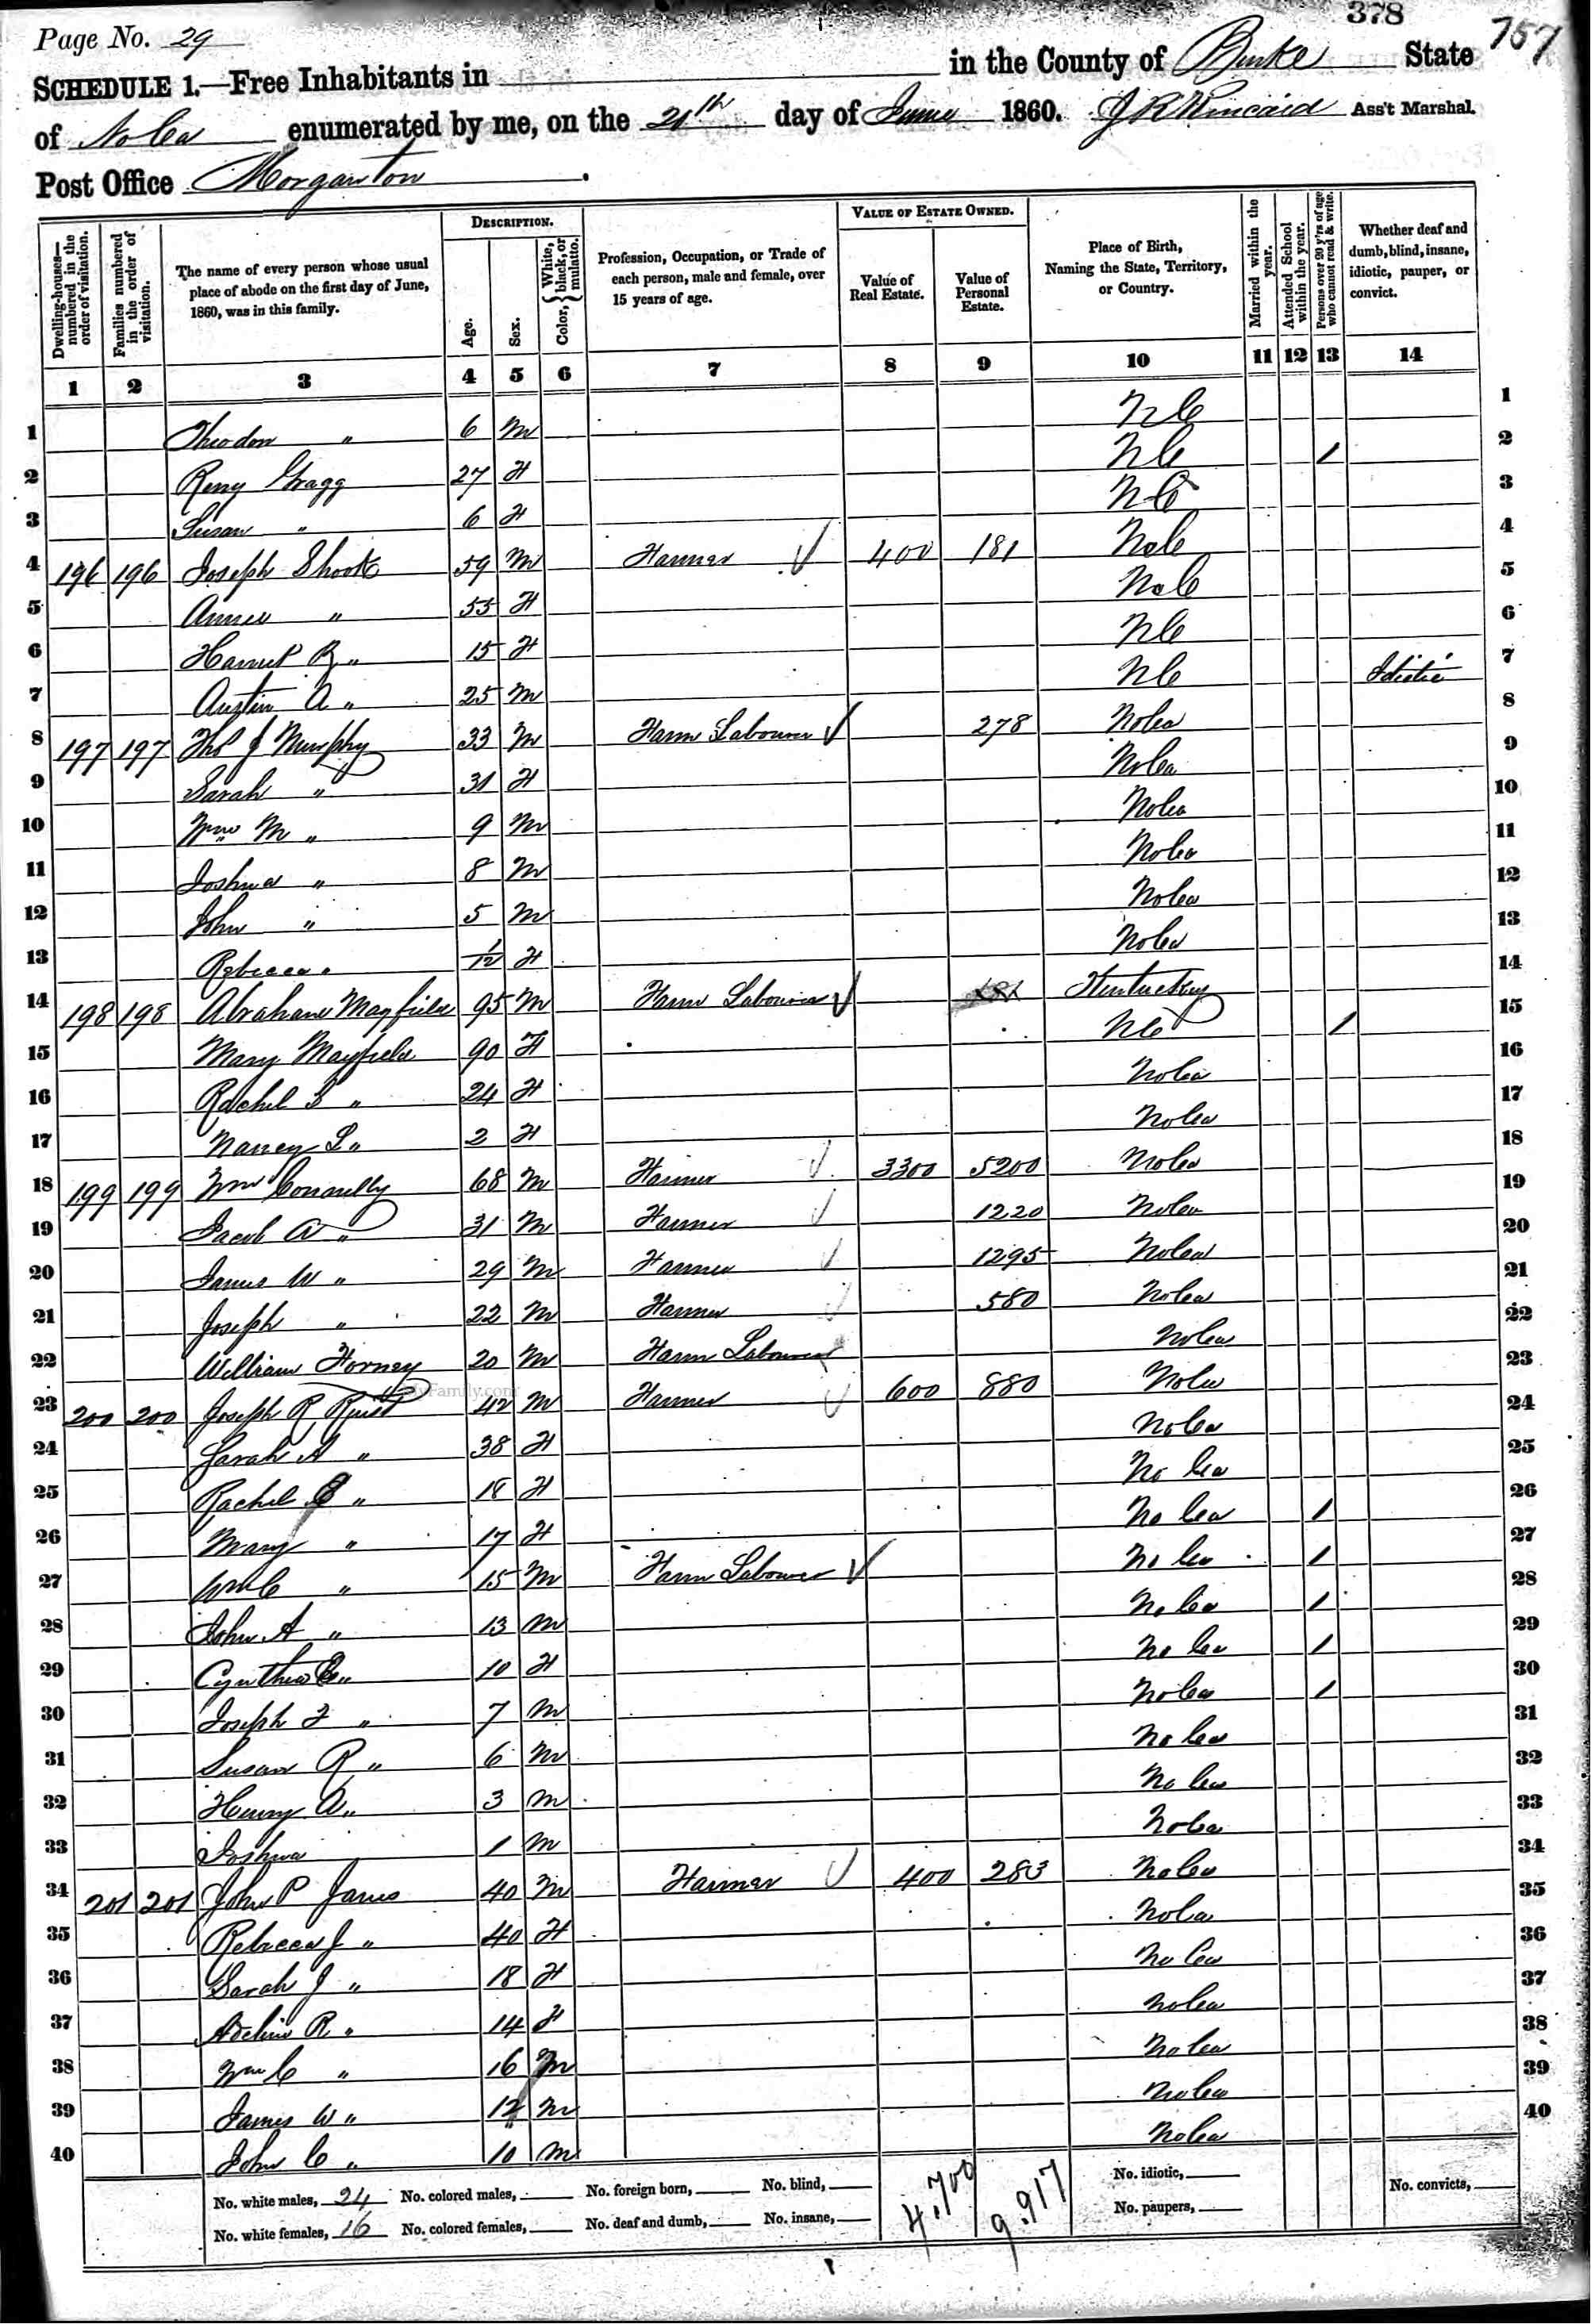 378
757
Page No. 29
SCHEDULE 1.—Free Inhabitants in in the County of Burke State
of No Ca enumerated by me, on the 21th day of June 1860. J R Kincaid Ass't Marshal.
Post Office Morganton
Dwelling-houses—numbered in the order of visitation. Families numbered in the order of visitation. The name of every person whose usual place of abode on the first day of June, 1860, was in this family. DESCRIPTION. Age. Sex. Color, White, black, or mulatto. Profession, Occupation, or Trade of each person, male and female, over 15 years of age. VALUE OF ESTATE OWNED. Value of Real Estate. Value of Personal Estate. Place of Birth, Naming the State, Territory, or Country. Married within the year. Attended School within the year. Persons over 20 y'rs of age who cannot read & write. Whether deaf and dumb, blind, insane, idiotic, pauper, or convict.
1 2 3 4 5 6 7 8 9 10 11 12 13 14
1 Theodon " 6 M N C 1
2 Gragg 27 F N C / 2
3 Susan " 6 F N C 3
4 196 196 Joseph Shook 59 M Farmer 400 181 No C 4
5 " 55 F No C 5
6 " 15 F N C 6
7 Austin A " 25 M N C Idiotic 7
8 197 197 Thos J Murphy 33 M Farm Labourer 278 No Ca 8
9 Sarah " 31 F No Ca 9
10 Wm M " 9 M No Ca 10
11 Joshua " 8 M No Ca 11
12 John " 5 M No Ca 12
13 Rebecca " 1/12 F No Ca 13
14 198 198 Abraham Mayfield 95 M Farm Labourer Kentucky 14
15 Mary Mayfield 90 F N C / 15
16 Rachel S " 24 F No Ca 16
17 Nancy L " 2 F No Ca 17
18 199 199 Wm Connelly 68 M Farmer 3300 5200 No Ca 18
19 Jacob A " 31 M Farmer 1220 No Ca 19
20 James W " 29 M Farmer 1295 No Ca 20
21 Joseph " 22 M Farmer 580 No Ca 21
22 William Forney 20 M Farm Labourer No Ca 22
MyFamily.com
23 200 200 Joseph R 42 M Farmer 600 880 No Ca 23
24 Sarah A " 38 F No Ca 24
25 Rachel E " 18 F No Ca 25
26 Mary " 17 F No Ca / 26
27 Wm C " 15 M Farm Labourer No Ca / 27
28 John A " 13 M No Ca / 28
29 Cynthia E " 10 F No Ca / 29
30 Joseph F " 7 M No Ca / 30
31 Susan R " 6 M No Ca 31
32 Henry A " 3 M No Ca 32
33 Joshua 1 M No Ca 33
34 201 201 John P Janes 40 M Farmer 400 283 No Ca 34
35 Rebecca J " 40 F No Ca 35
36 Sarah J " 18 F No Ca 36
37 Adeline R " 14 F No Ca 37
38 Wm C " 16 M No Ca 38
39 James W " 12 M No Ca 39
40 John C " 10 M No Ca 40
No. white males, 24 No. colored males, No. foreign born, No. blind, 4.700 9.917 No. idiotic, No. convicts,
No. white females, 16 No. colored females, No. deaf and dumb, No. insane, No. paupers,